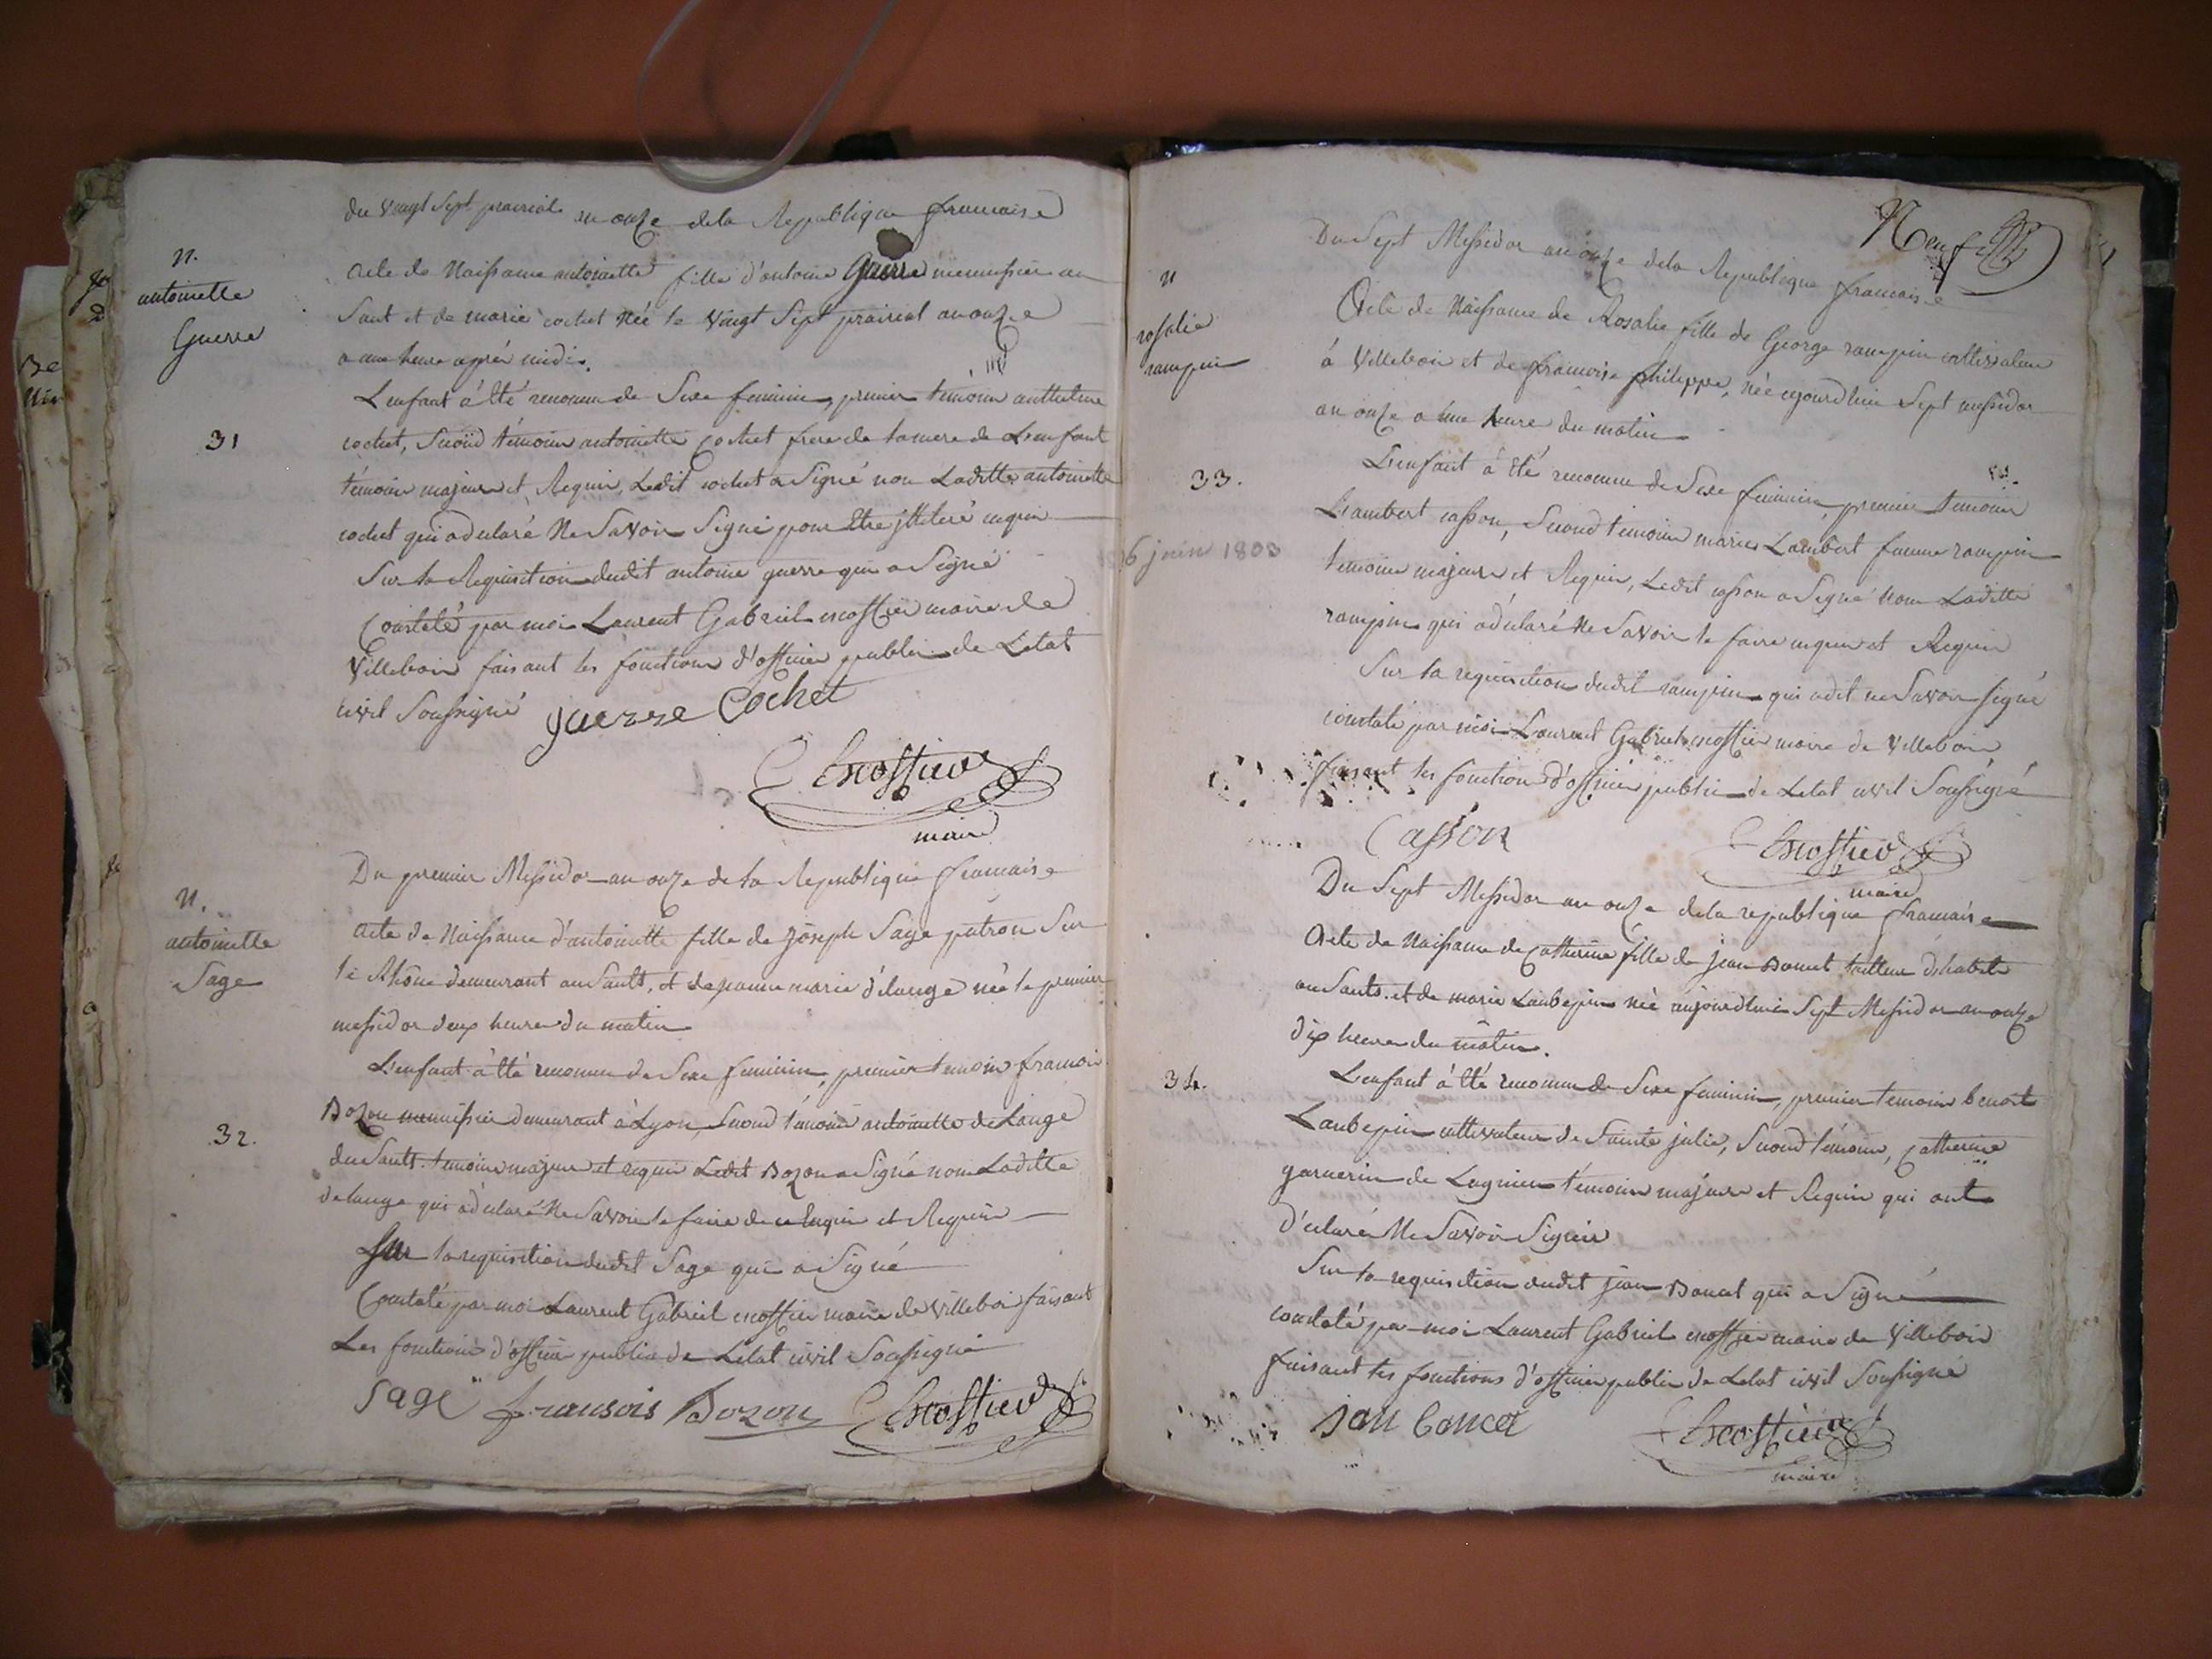 du vingt Sept prairial an onze dela Republique francaise
n.
antoinette
Guerre
acte de Naissance antoinette fille d'antoine Guerre menuisier au
Saut et de marie cochet Née le vingt Sept prairial an onze
a une heure aprés midi.
L'enfant á été reconnu de Sexe feminin, premier témoin anthelme
31
cochet, Second témoin antoinette cochet frere de la mere de L'enfant
témoins majeurs et Requis, Ledit cochet a Signé non Laditte antoinette
cochet qui a declaré Ne Savoir Signé pour être enquis
Sur la Requisition dudit antoine guerre qui a Signé
Constaté par moi Laurent Gabriel escoffier maire de
Villebois faisant les fonctions d'officier public de Letat
civil Soussigné guerre Cochet
Escoffier
maire
Du premier Messidor an onze de la Republique francaise
n.
antoinette
Sage
acte de Naissance d'antoinette fille de Joseph Sage patron Sur
le Rhône demeurant au Sault, et de jeanne marie délange née le premier
messidor deux heures du matin
L'enfant á été reconnu de Sexe feminin, premier temoin francois
32.
Bozon menuisier demeurant á Lyon, Second témoin antoinette de Lange
du Sault témoins majeurs et requis Ledit Bozon a Signé non Laditte
delange qui a déclaré Ne Savoir le faire de ce Enquis et Requis
Sur la requisition dudit Sage qui a Signé
Constaté par moi Laurent Gabriel escoffier maire de Villebois faisant
Les fonctions d'officier public de Letat civil Soussigné
Sage fransois Bozon Escoffier
Neuf
Du Sept Messidor an onze dela Republique francaise
n
rosalie
rampin
Acte de Naissance de Rosalie fille de George rampin cultivateur
á Villebois et de francoise philippe, née aujourdhui Sept messidor
an onze a une heure du matin
33.
L'enfant á été reconnu de Sexe feminin, premier temoin
Lambert casson, Second temoin marie Lambert femme rampin
26 juin 1803
temoins majeurs et Requis, Ledit casson a Signé Non Laditte
rampin qui a declaré Ne Savoir le faire enquis et Requis
Sur la requisition dudit rampin qui a dit ne Savoir signé
constaté par moi Laurent Gabriel escoffier maire de Villebois
faisant les fonctions d'officier public de Letat civil Soussigné
Casson Escoffier
maire
Du Sept Messidor an onze dela republique francaise
Acte de Naissance de Catherine fille de jean Boncet tailleur dhabits
au Sault et de marie Laubepin née aujourdhui Sept Messidor an onze
dix heures du matin.
34.
L'enfant á été reconnu de Sexe feminin, premier temoin benoit
Laubepin cultivateur de Sainte julie, Second témoin, Catherine
garnerin de Lagnieu témoins majeurs et Requis qui ont
d'eclaré Ne Savoir Signer
Sur la requisition dudit jean Boncet qui a Signé
constaté par moi Laurent Gabriel escoffier maire de Villebois
faisant les fonctions d'officier public de Letat civil Soussigné
jan boncet Escoffier
maire